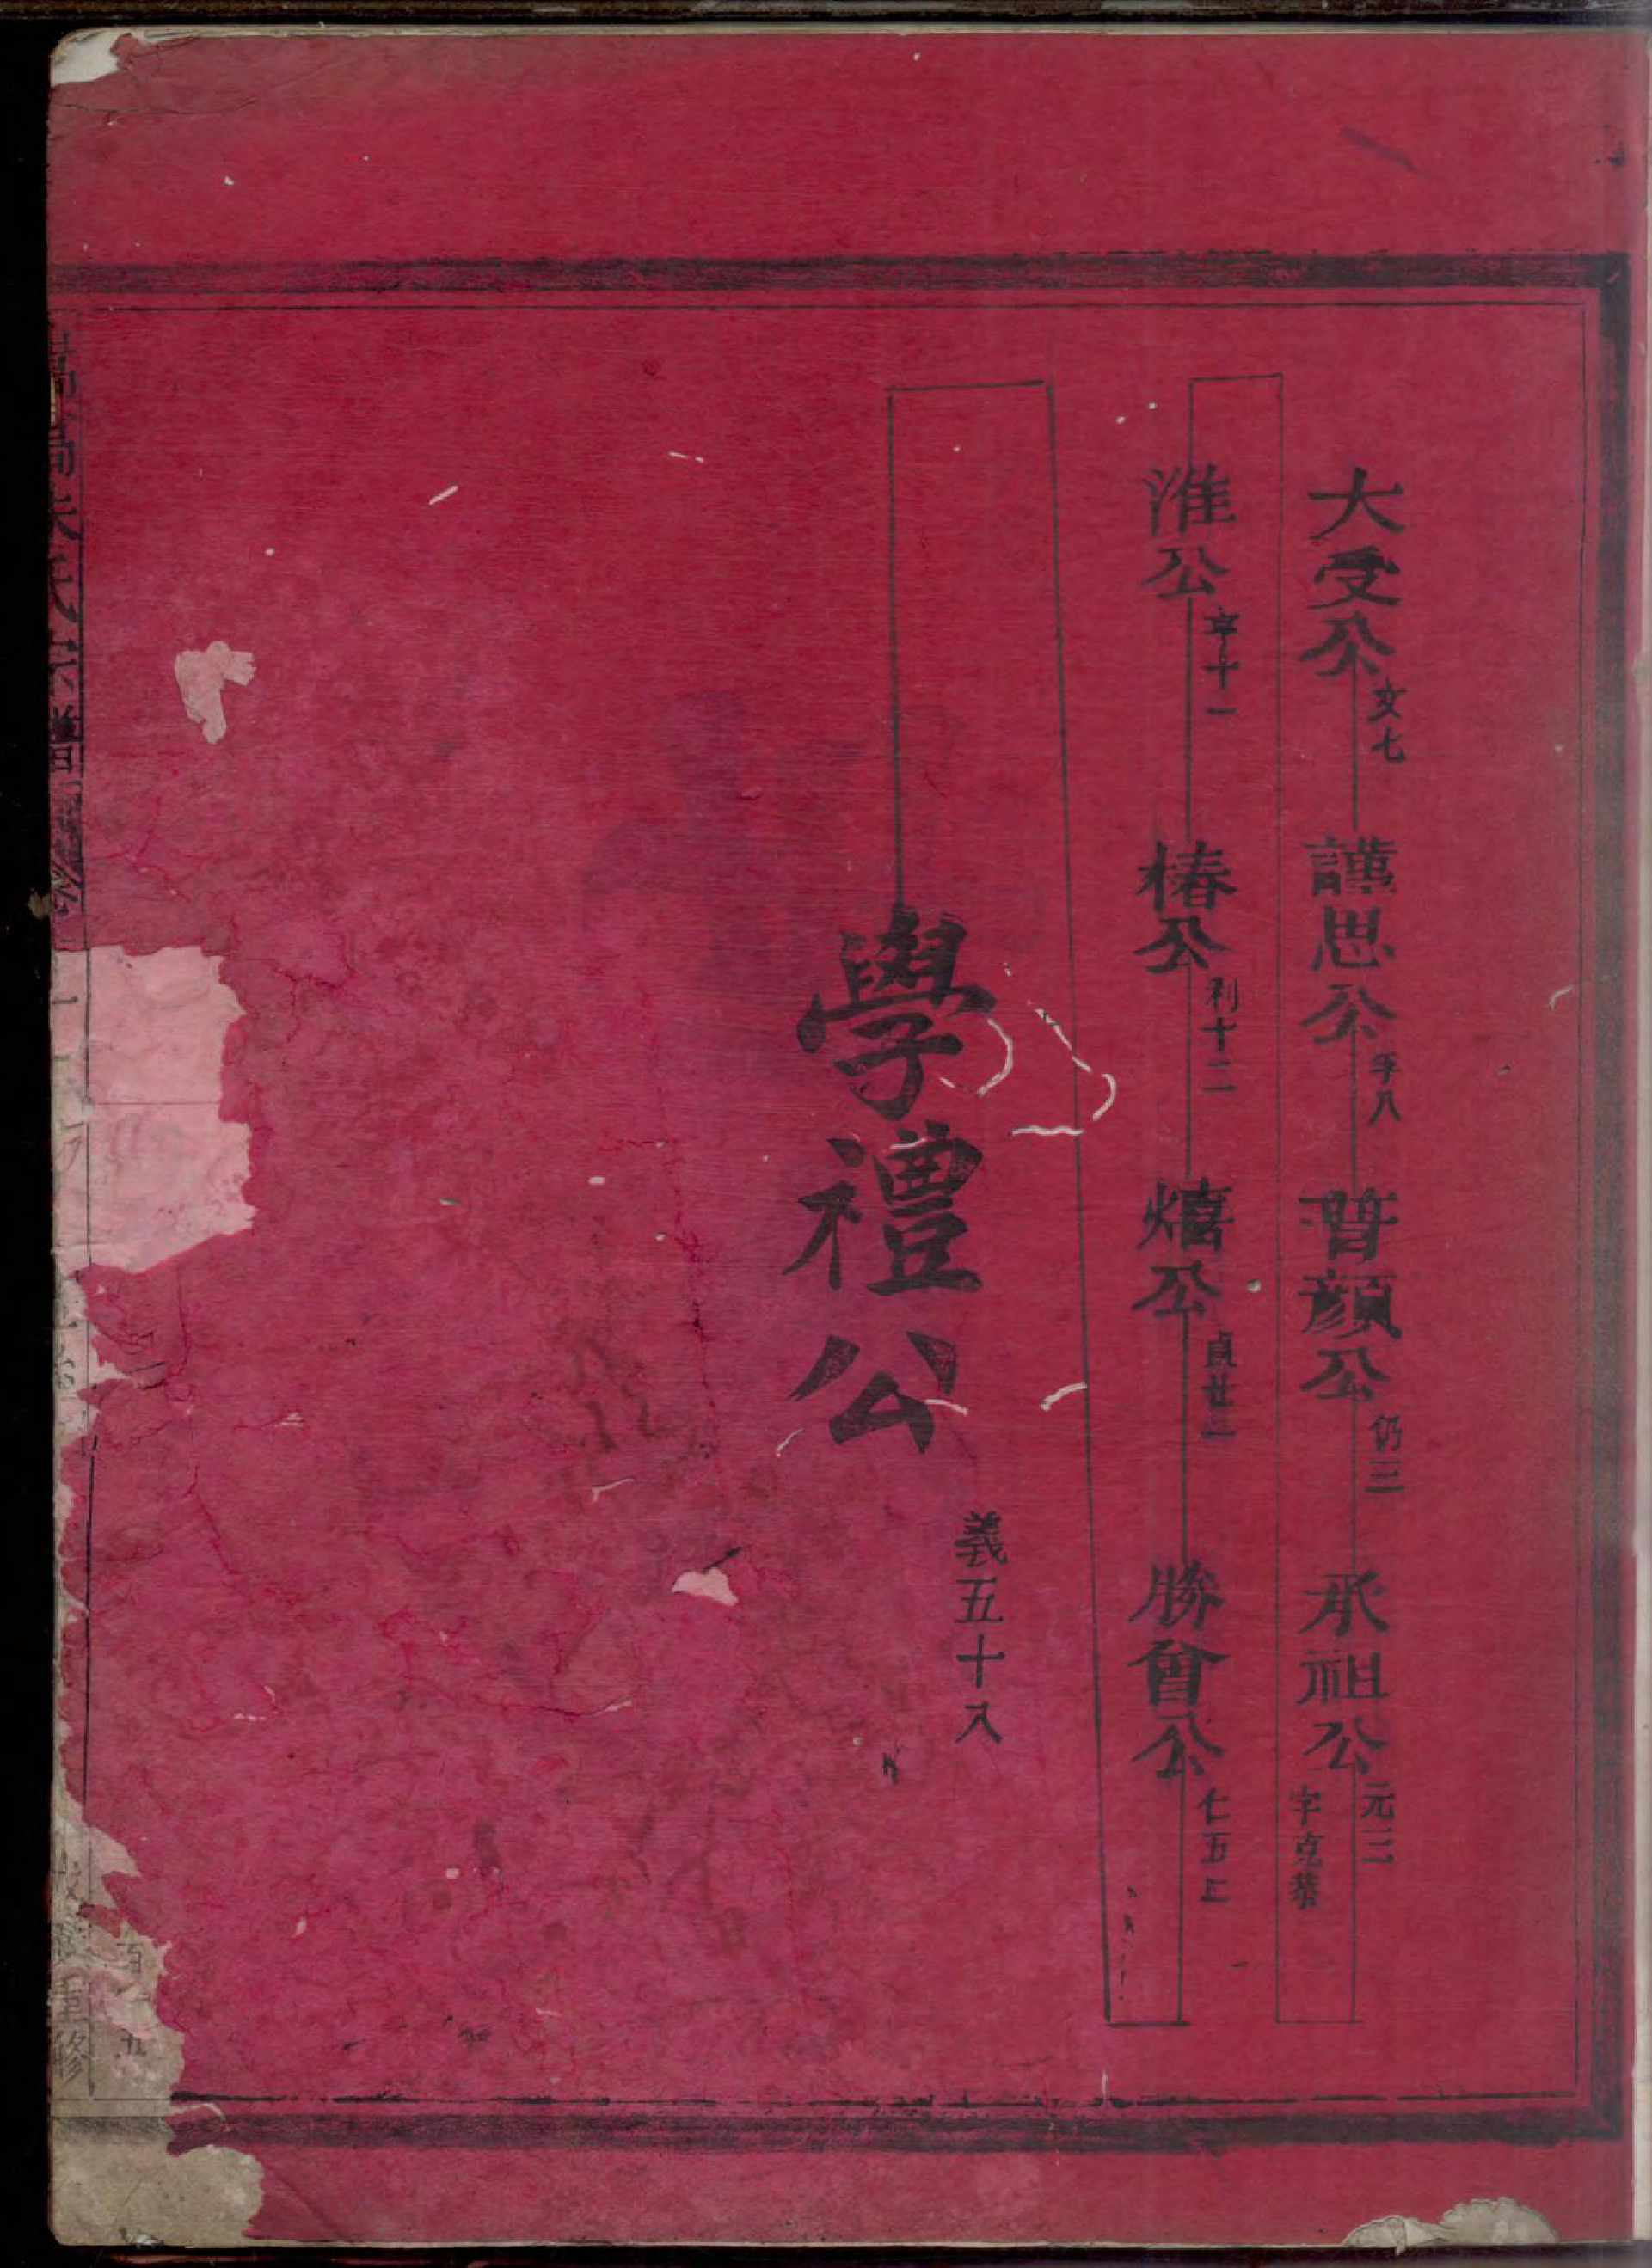 大受公 文七 謹思公 季八 普顔公 仍三 承祖公 元二 字克恭
淮公 亨十一 椿公 利十二 熺公 貞廿二 勝會公 仁五
學禮公 義五十八
朱氏宗譜 卷
重修